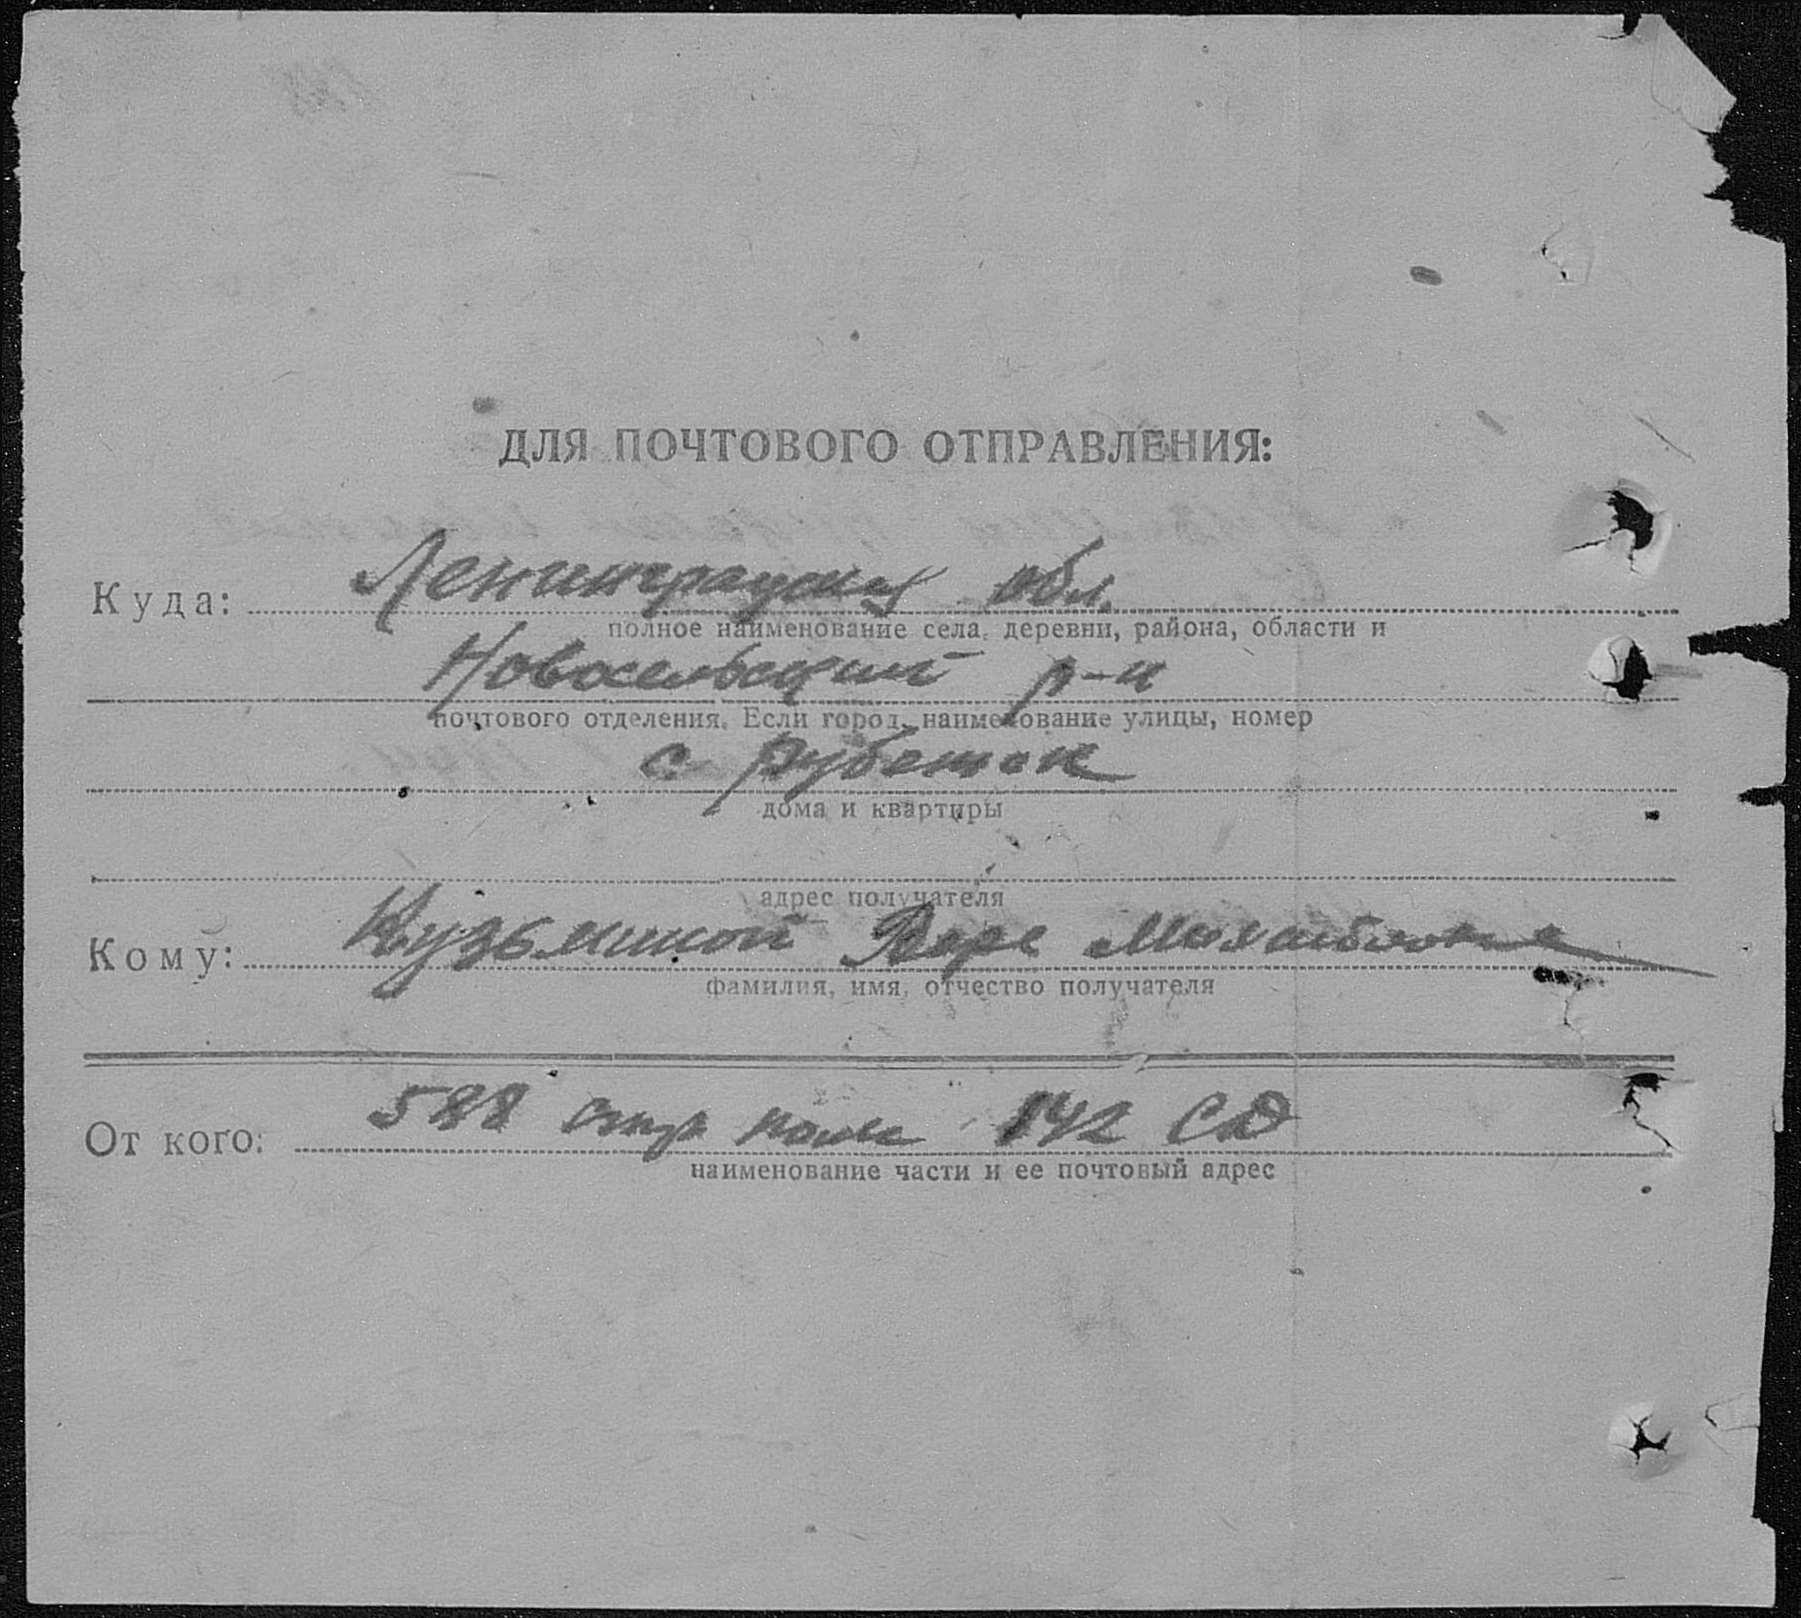 ДЛЯ ПОЧТОВОГО ОТПРАВЛЕНИЯ:
Куда: Ленинградская обл.
полное наименование села, деревни, района, области и
Новосельский р-н
почтового отделения. Если город, наименование улицы, номер
с Рубешок
дома и квартиры
адрес получателя
Кому: Кузьминой Вере Михайловне
фамилия, имя, отчество получателя
От кого: 588 стр полк 142 СД
наименование части и ее почтовый адрес